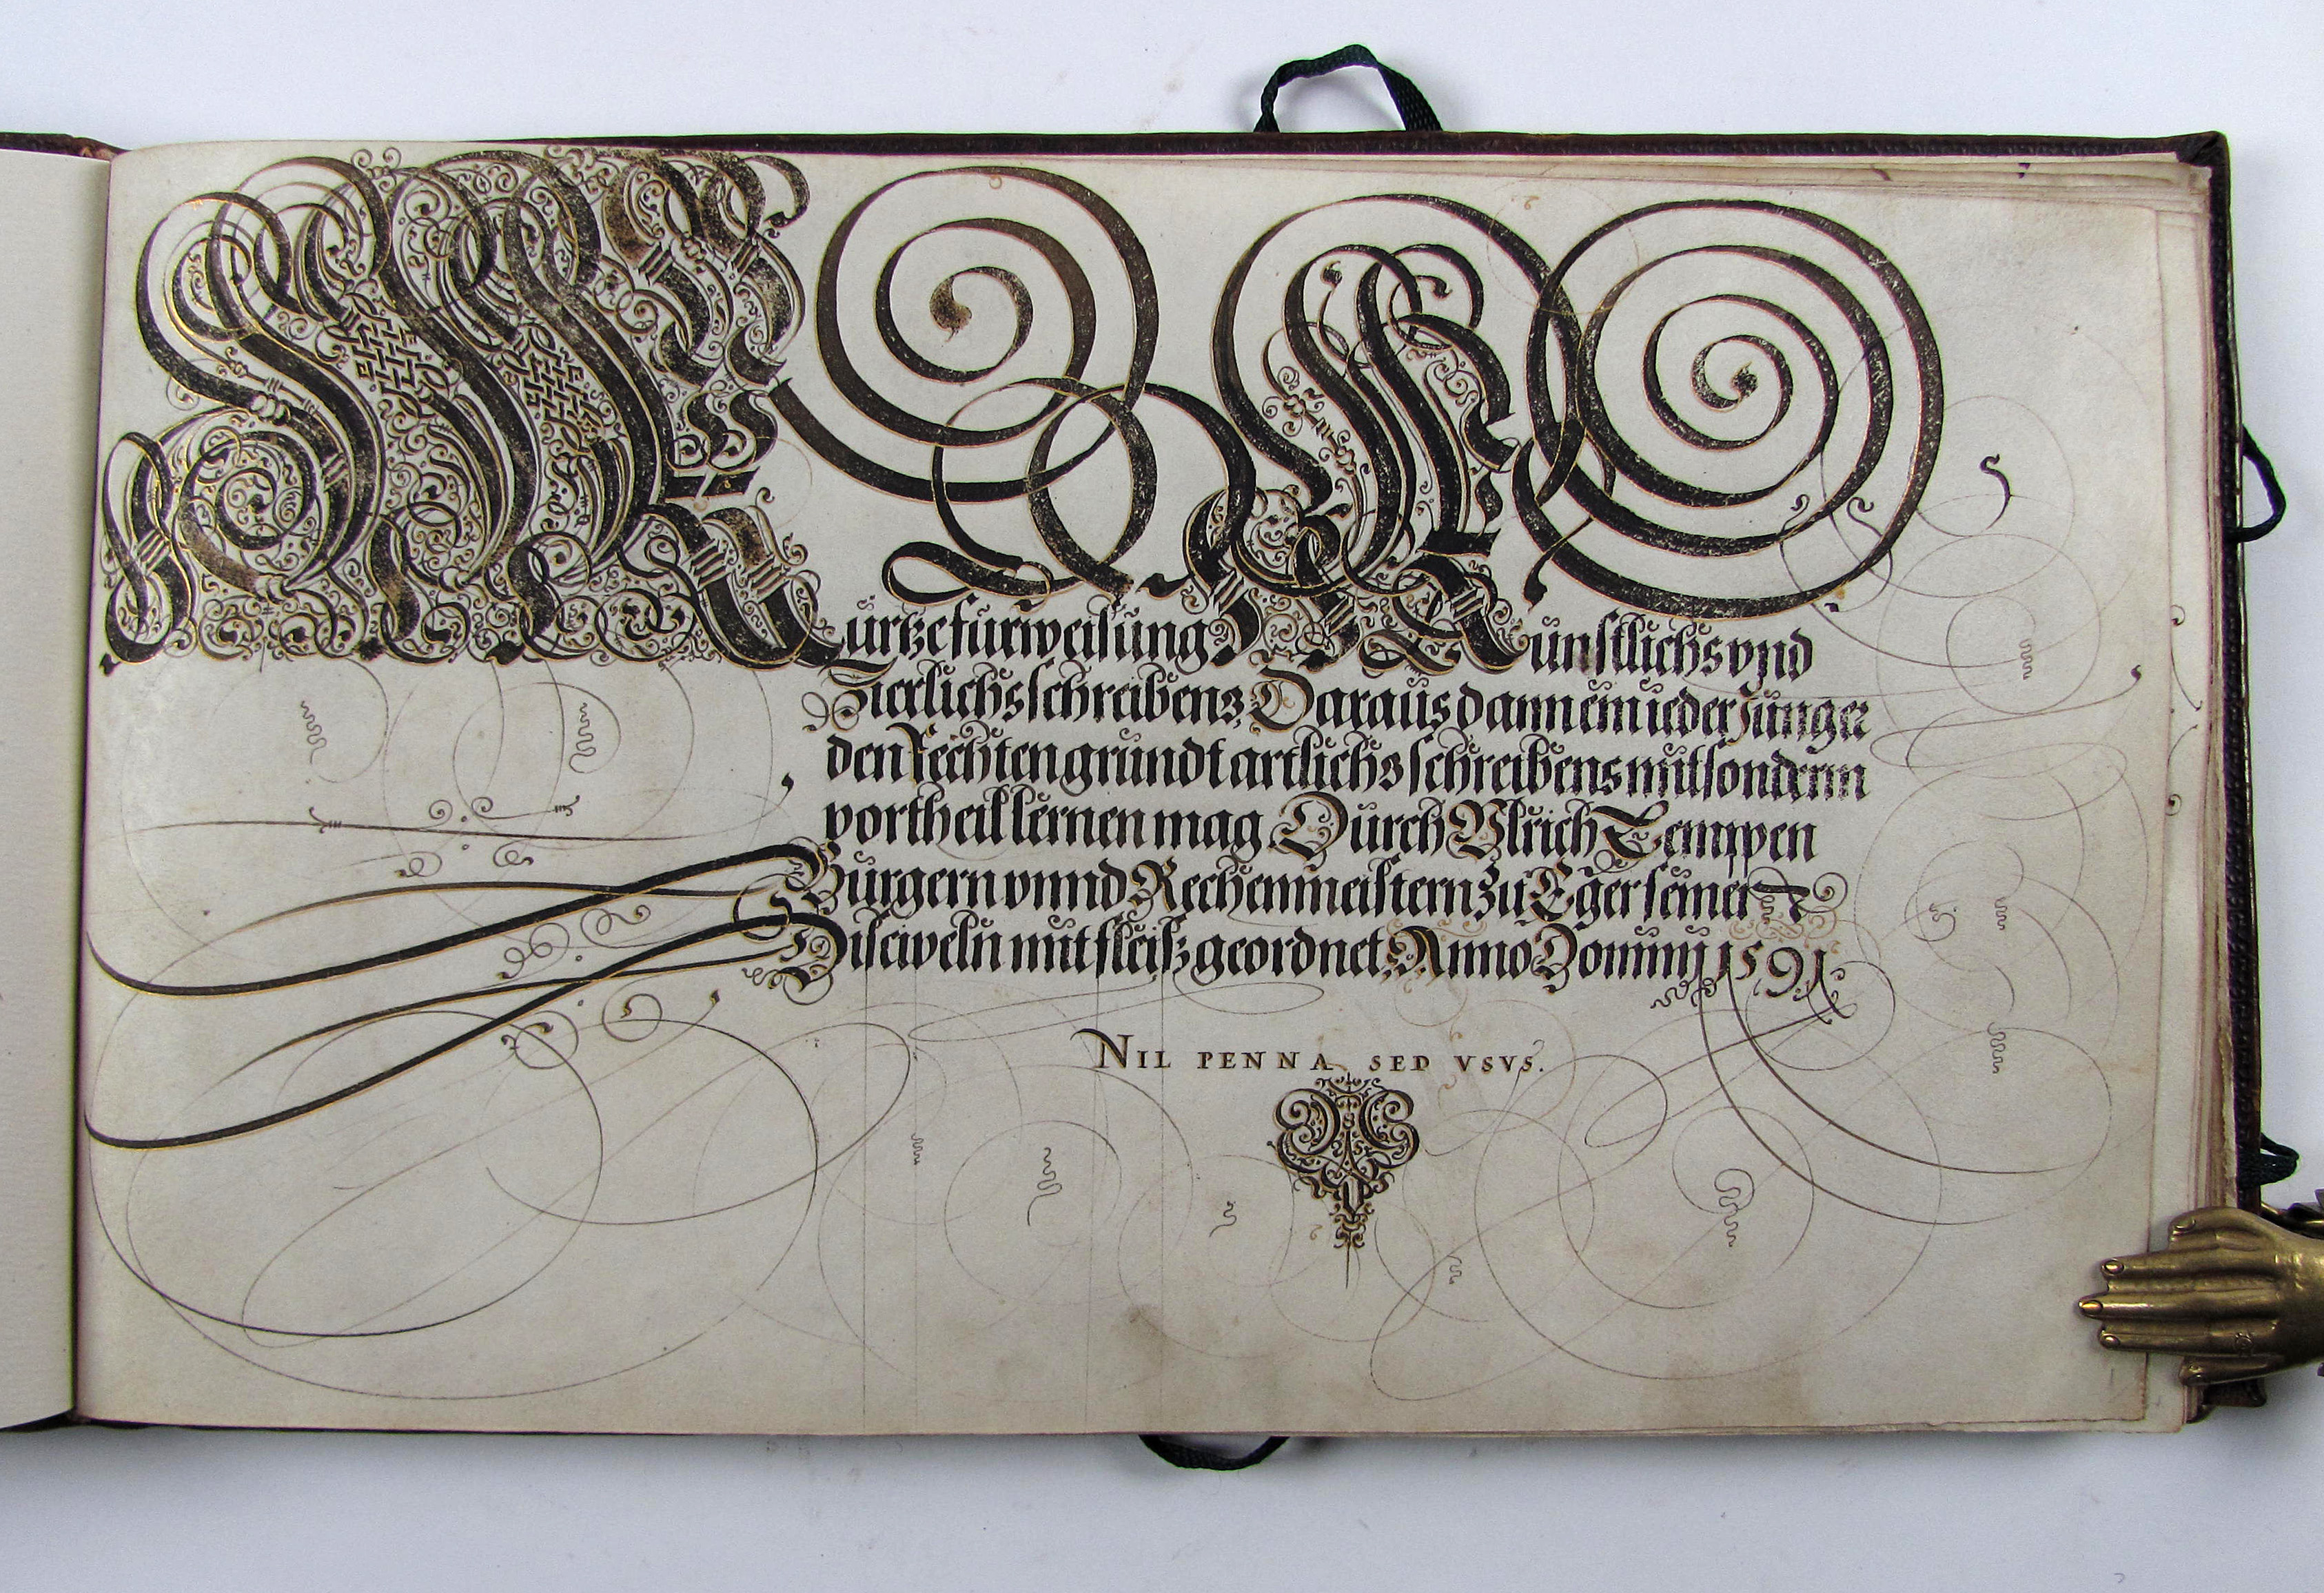 Kurtze furweisung Kunstlichs vnd
Zierlichs schreibens, Daraus dann ein ieder Junger
den Rechten grundt artlichs schreibens mit sonderm
vortheil lernen mag, Durch Vlrich Temppen
Burgern vnnd Rechenmeistern zu Eger seiner
Disciveln mit fleisz geordnet, Anno Dominj 1591.
NIL PENNA, SED VSVS.